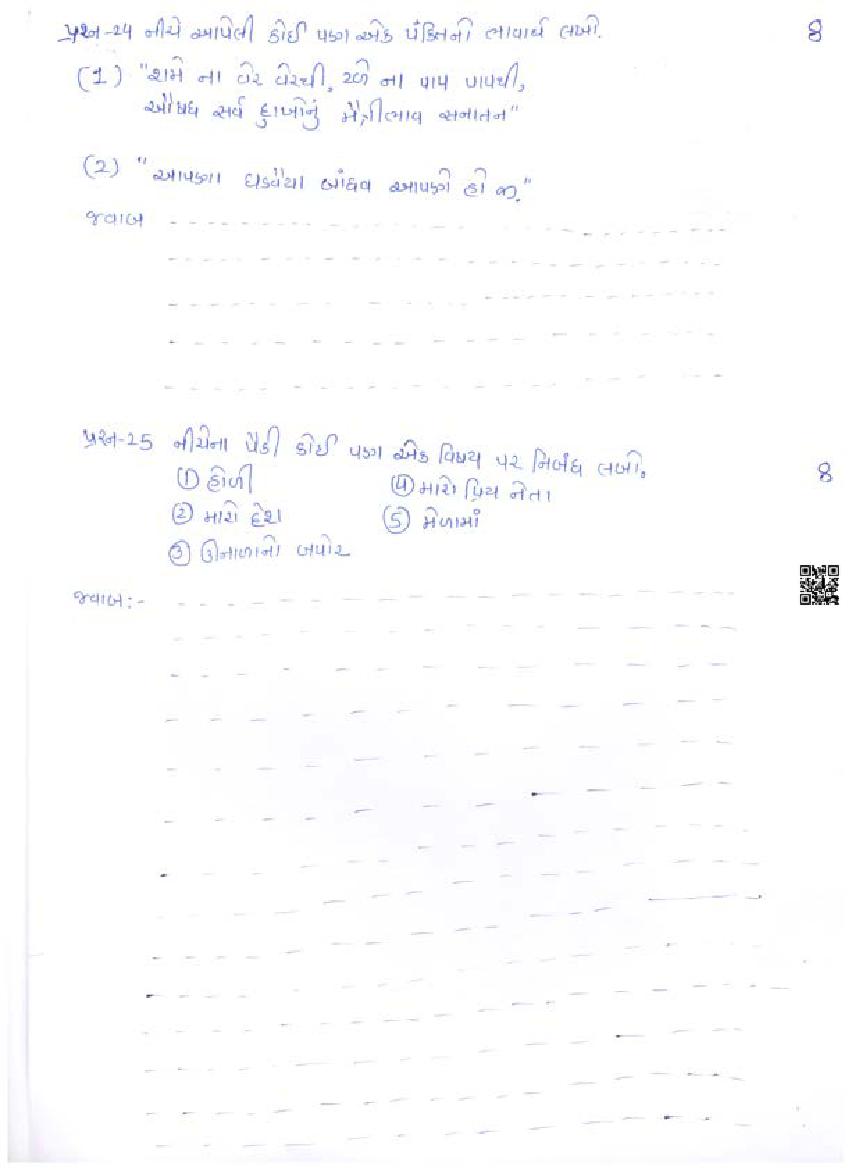 પ્રશ્ન-24 નીચે આપેલી કોઈ પણ એક પંક્તિનો ભાવાર્થ લખો. 8
(1) "શમે ના વેર વેરથી, ટળે ના પાપ પાપથી,
ઔષધ સર્વ દુઃખોનું મૈત્રીભાવ સનાતન"
(2) "આપણા ઘડવૈયા બાંધવ આપણે હો જી."
જવાબ
પ્રશ્ન-25 નીચેના પૈકી કોઈ પણ એક વિષય પર નિબંધ લખો. 8
① હોળી ④ મારો પ્રિય નેતા
② મારો દેશ ⑤ મેળામાં
③ ઊનાળાનો બપોર
જવાબ :-